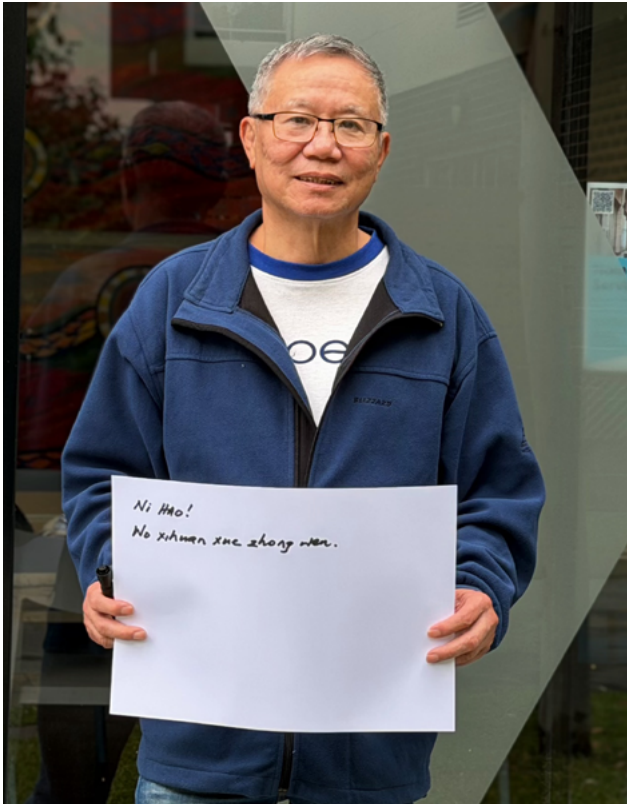 oe
BLIZZARD
Ni HAO!
Wo xihuan xue zhong wen.